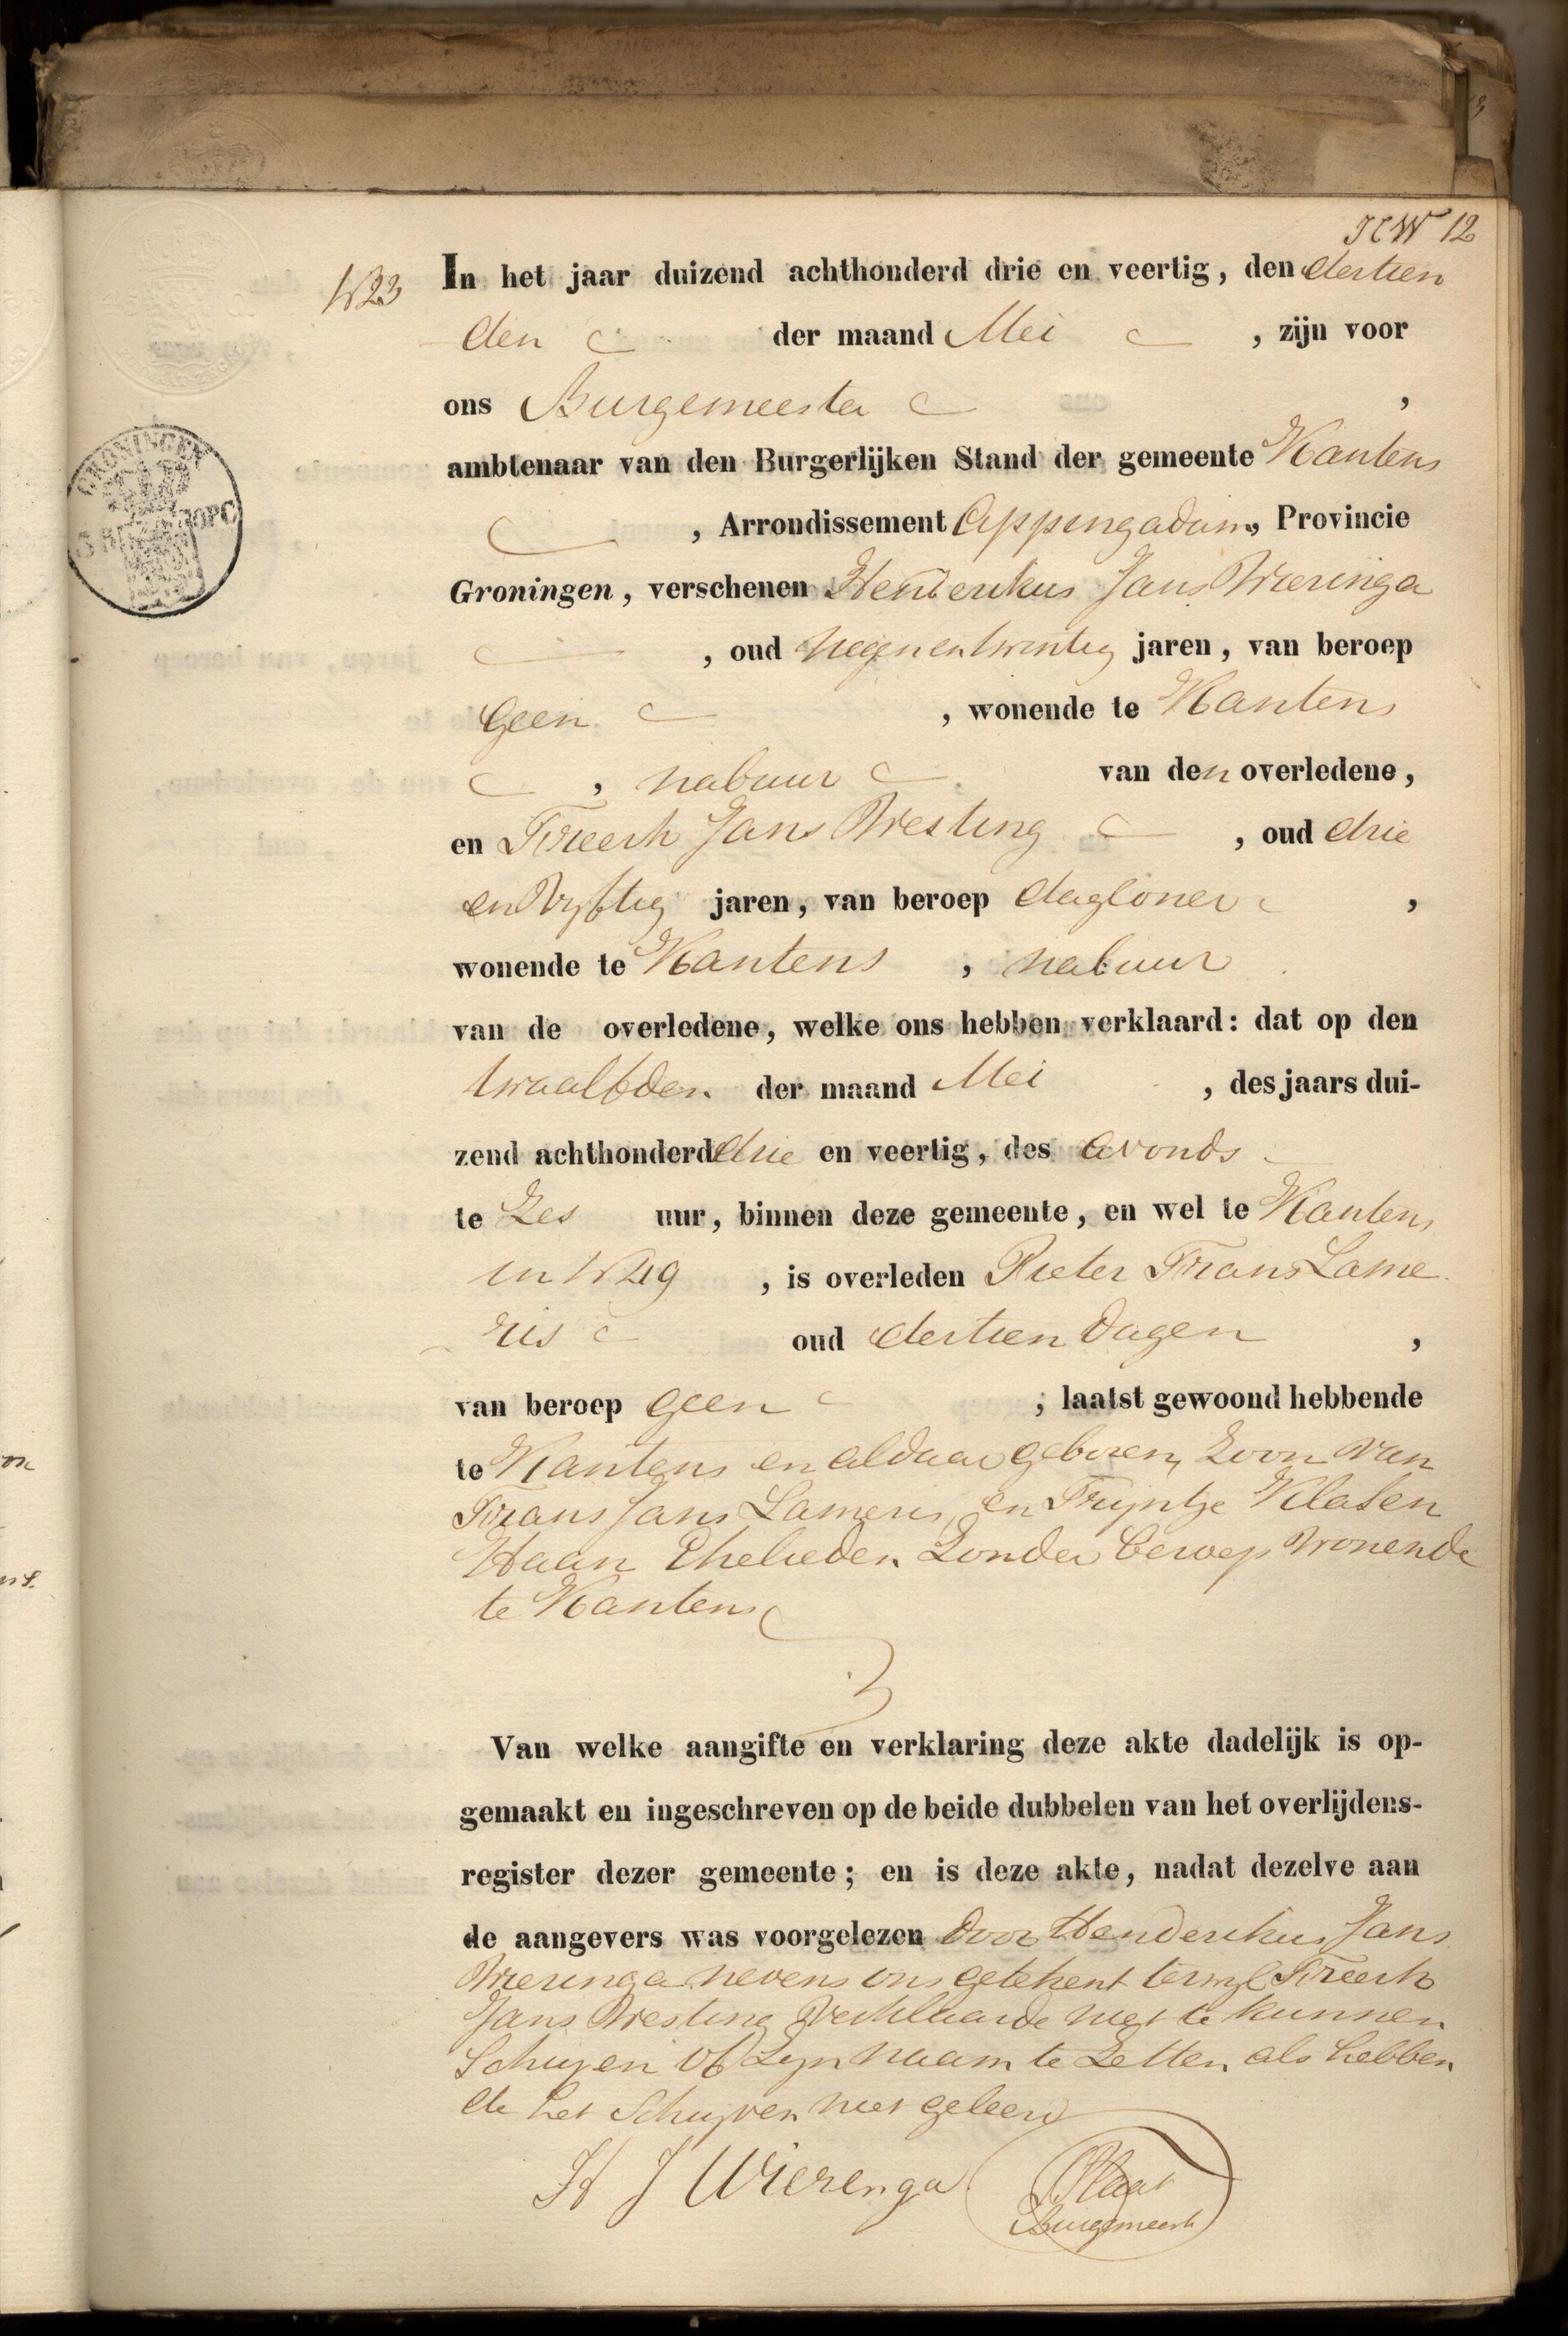 12
N 23
In het jaar duizend achthonderd drie en veertig, den dertien
den der maand Mei, zijn voor
ons Burgemeester,
ambtenaar van den Burgerlijken Stand der gemeente Kantens
, Arrondissement Appingadam, Provincie
GRONINGEN
Groningen, verschenen Henderikus Jans Wieringa
, oud negenentwintig jaren, van beroep
geen, wonende te Kantens
, nabuur van den overledene,
en Freerk Jans Westing, oud drie
en Vyftig jaren, van beroep dagloner,
wonende te Kantens, nabuur
van de overledene, welke ons hebben verklaard: dat op den
twaalfden der maand Mei, des jaars dui-
zend achthonderd drie en veertig, des avonds
te Zes uur, binnen deze gemeente, en wel te Kantens
in N 49, is overleden Pieter Frans Lame
ris oud dertien dagen,
van beroep geen, laatst gewoond hebbende
te Kantens en aldaar geboren, Zoon van
Frans Jans Lameris, en Tryntje Klasen
Haan Ehelieden Zonder beroep wonende
te Kantens
Van welke aangifte en verklaring deze akte dadelijk is op-
gemaakt en ingeschreven op de beide dubbelen van het overlijdens-
register dezer gemeente; en is deze akte, nadat dezelve aan
de aangevers was voorgelezen door Henderikus Jans
Wieringa nevens ons getekent terwyl Freerk
Jans Westing Verklaarde niet te kunnen
Schryven of Zyn naam te Zetten als hebben
de het Schryven niet geleerd
H J Wierenga
Burgemeester